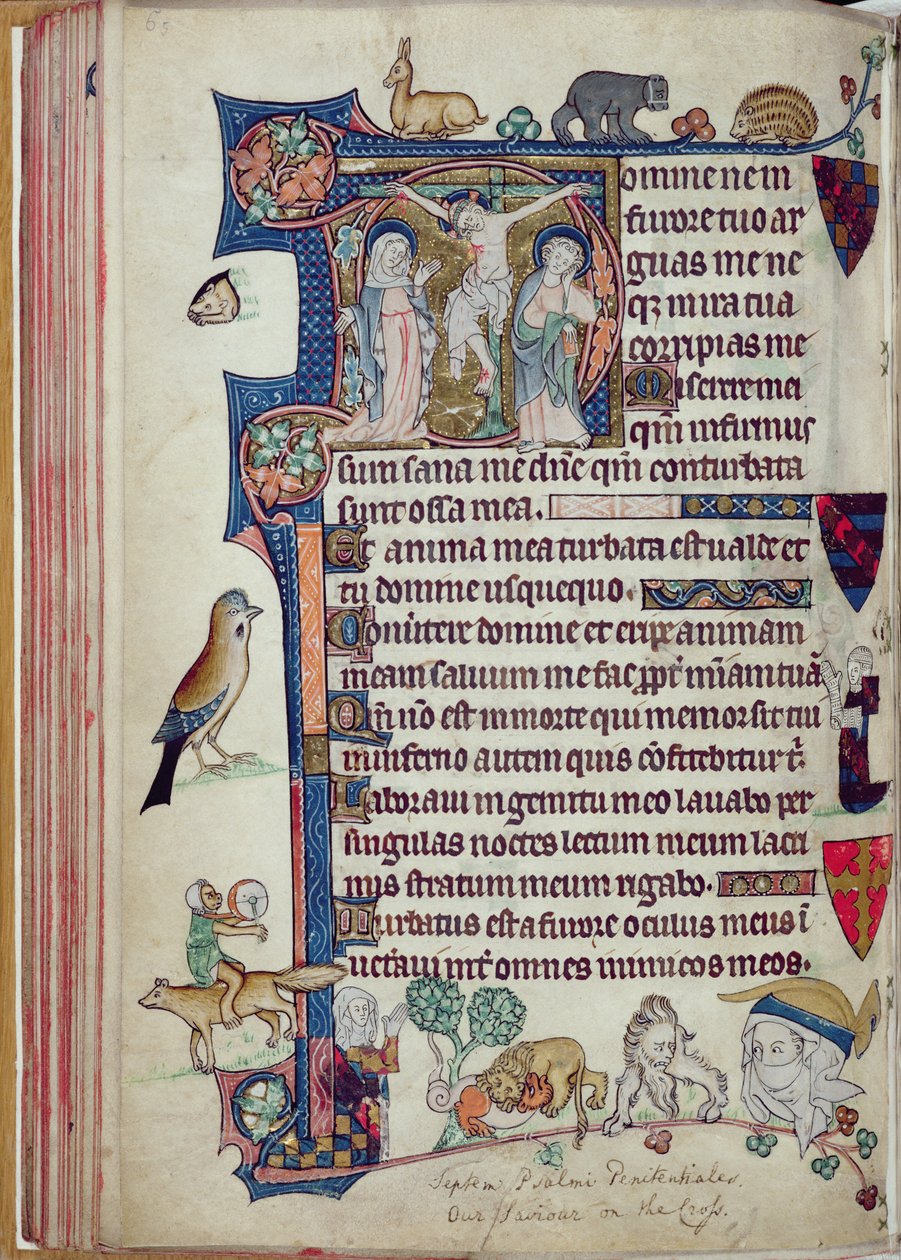 65
Domine ne in
furore tuo ar
guas me ne
qꝫ in ira tua
corripias me
Miserere mei
qm̄ infirmus
sum sana me dn̄e qm̄ conturbata
sunt ossa mea.
Et anima mea turbata est ualde et
tu domine usquequo.
Conūtere domine et eripe animam
meam saluum me fac ꝓpt̄ mīam tuā
Qm̄ nō est in morte qui memor sit tui
in inferno autem quis cōfitebitur t̄.
Laboraui in gemitu meo lauabo per
singulas noctes lectum meum lacri
mis stratum meum rigabo.
Turbatus est a furore oculus meus ī
uet̄aui int̄ omnes inimicos meos.
Septem Psalmi Penitentiales.
Our Saviour on the Cross.